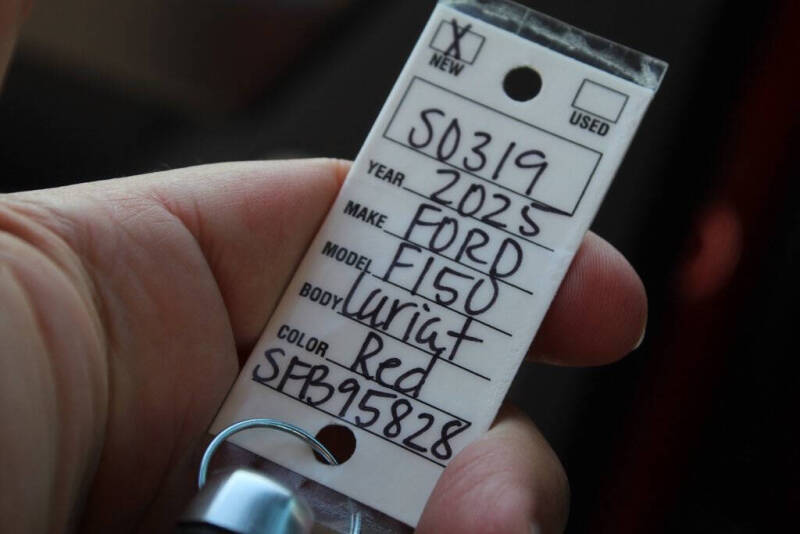 X
NEW
USED
S0319
YEAR 2025
MAKE FORD
MODEL F150
BODY Lariat
COLOR Red
SFB95828